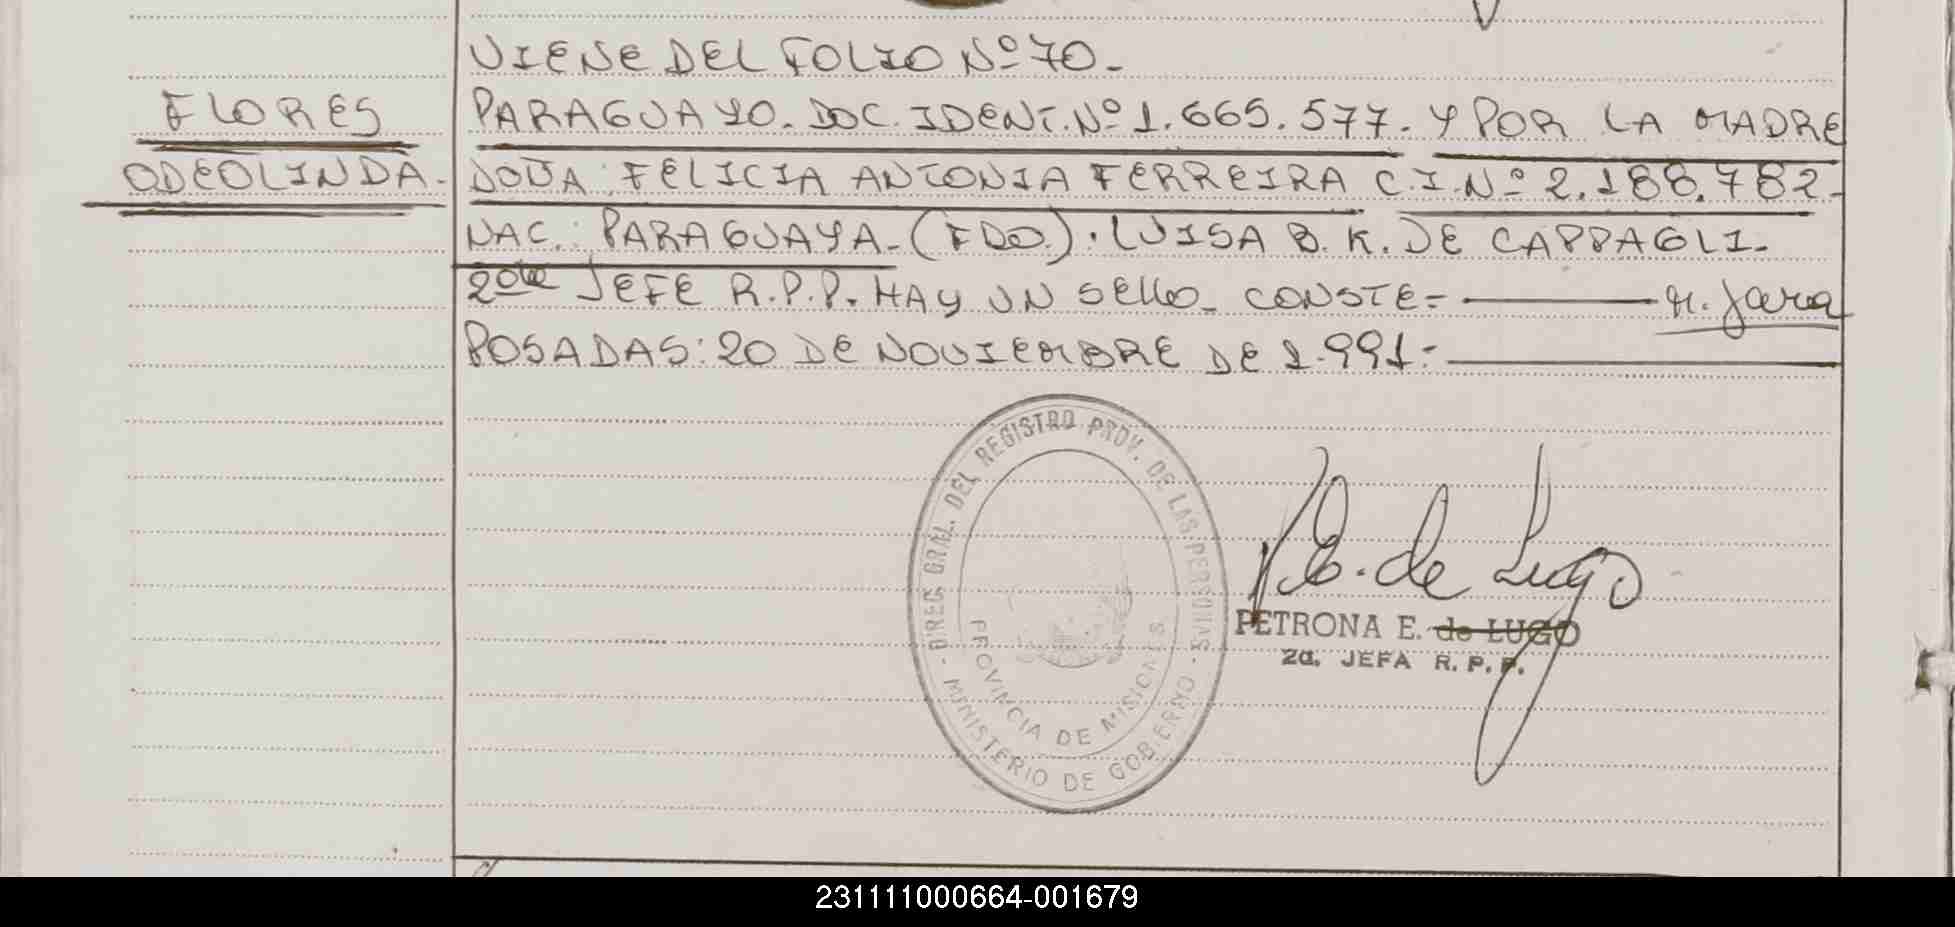 VIENE DEL FOLIO Nº 70.-
FLORES
ODEOLINDA.-
PARAGUAYO. DOC. IDENT. Nº 1.665.577. Y POR LA MADRE
DOÑA: FELICIA ANTONIA FERREIRA C.I. Nº 2.188.782-
NAC.: PARAGUAYA.- (FDO.). LUISA B. K. DE CAPPAGLI-
2da JEFE R.P.P. HAY UN SELLO- CONSTE=
M. Jara
POSADAS: 20 DE NOVIEMBRE DE 1.991:-
DIREC. GRAL. DEL REGISTRO PROV. DE LAS PERSONAS
PROVINCIA DE MISIONES
- MINISTERIO DE GOBIERNO -
P. E. de Lugo
PETRONA E. de LUGO
2a. JEFA R. P. P.
231111000664-001679